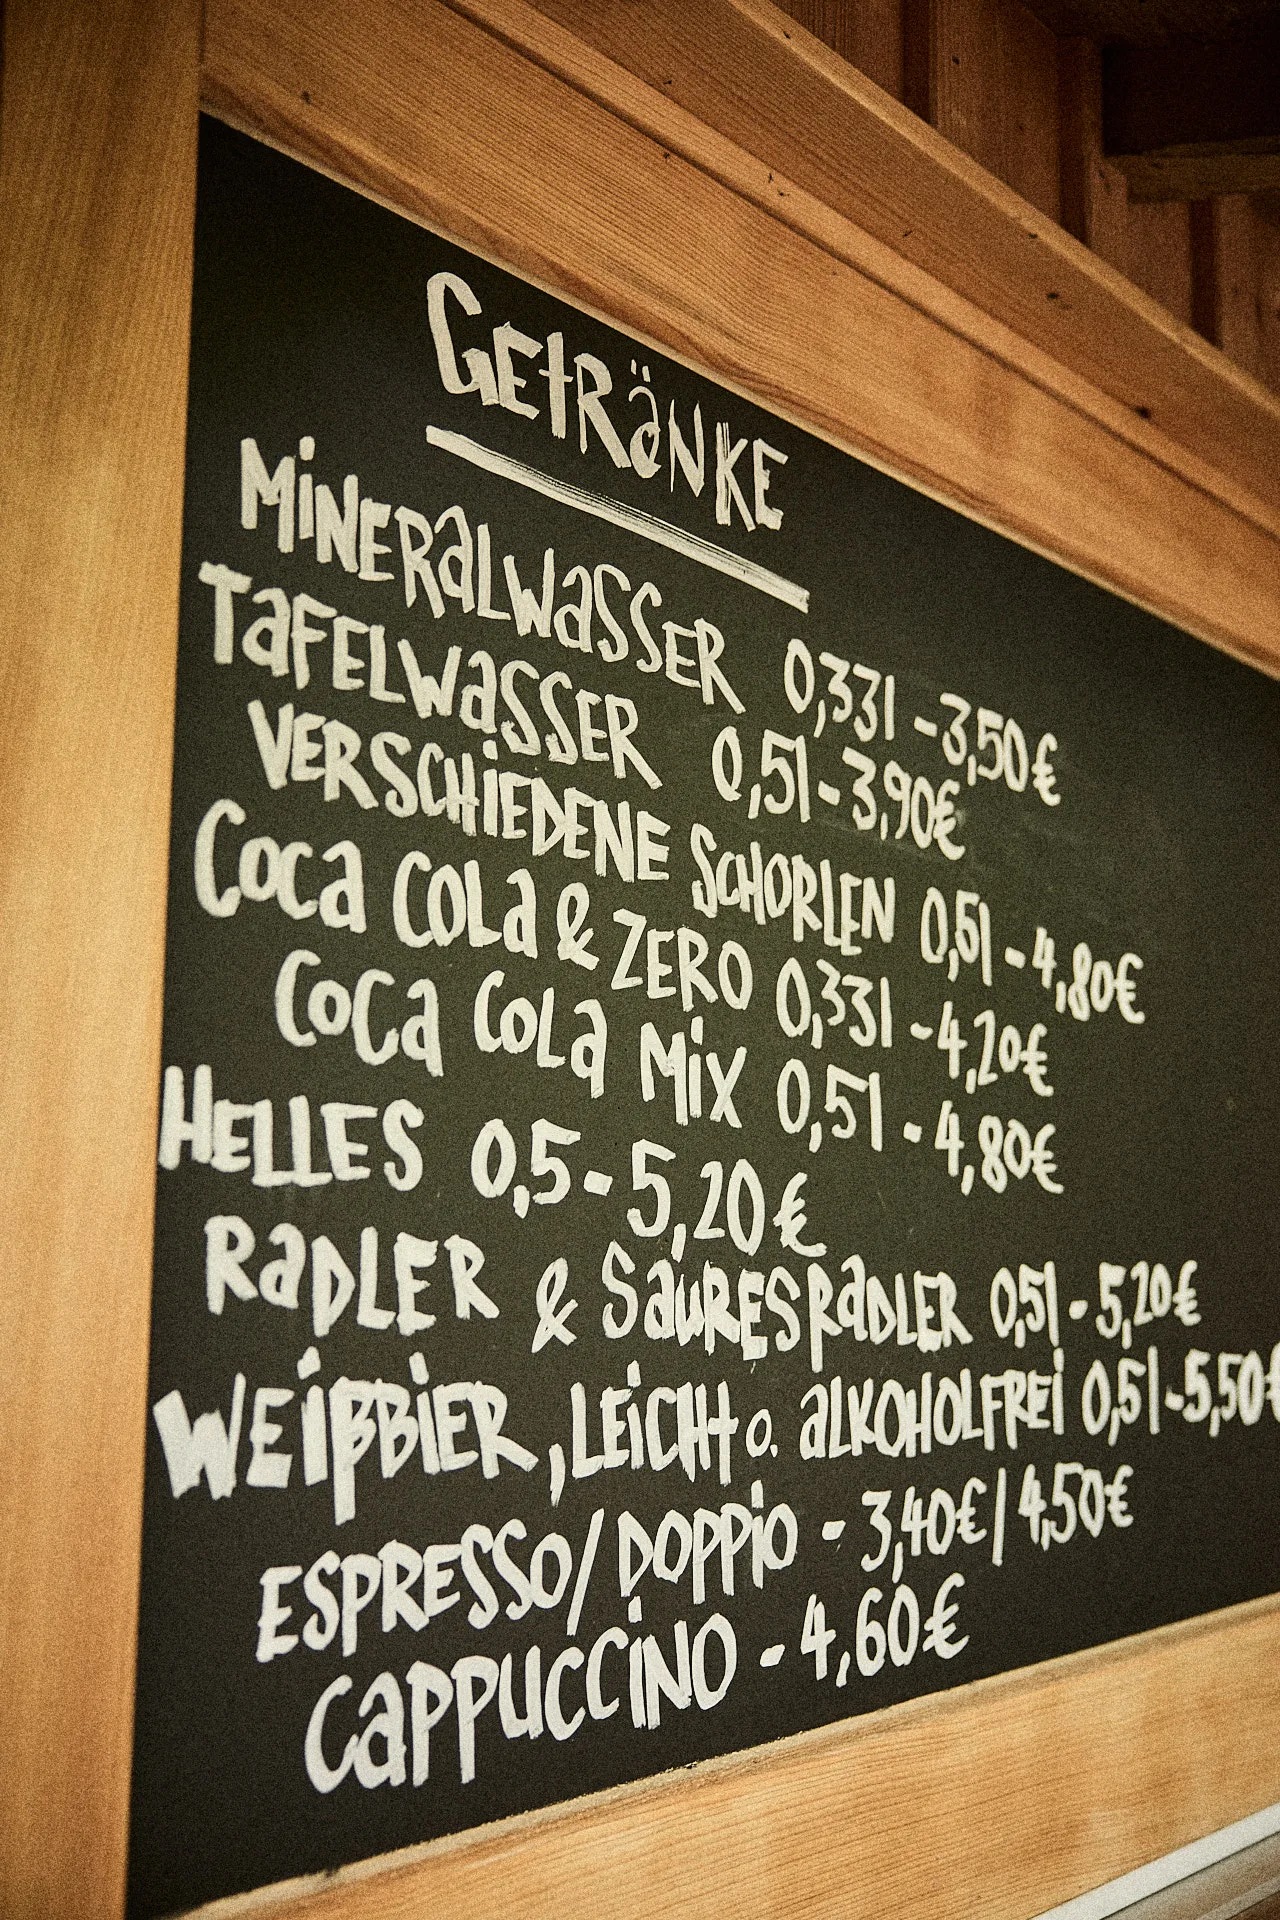 GETRÄNKE
MINERALWASSER 0,33l - 3,50€
TAFELWASSER 0,5l - 3,90€
VERSCHIEDENE SCHORLEN 0,5l - 4,80€
COCA COLA & ZERO 0,33l - 4,20€
COCA COLA MIX 0,5l - 4,80€
HELLES 0,5 - 5,20€
RADLER & SAURESRADLER 0,5l - 5,20€
WEIßBIER, LEICHT o. ALKOHOLFREI 0,5l - 5,50€
ESPRESSO/DOPPIO - 3,40€/4,50€
CAPPUCCINO - 4,60€